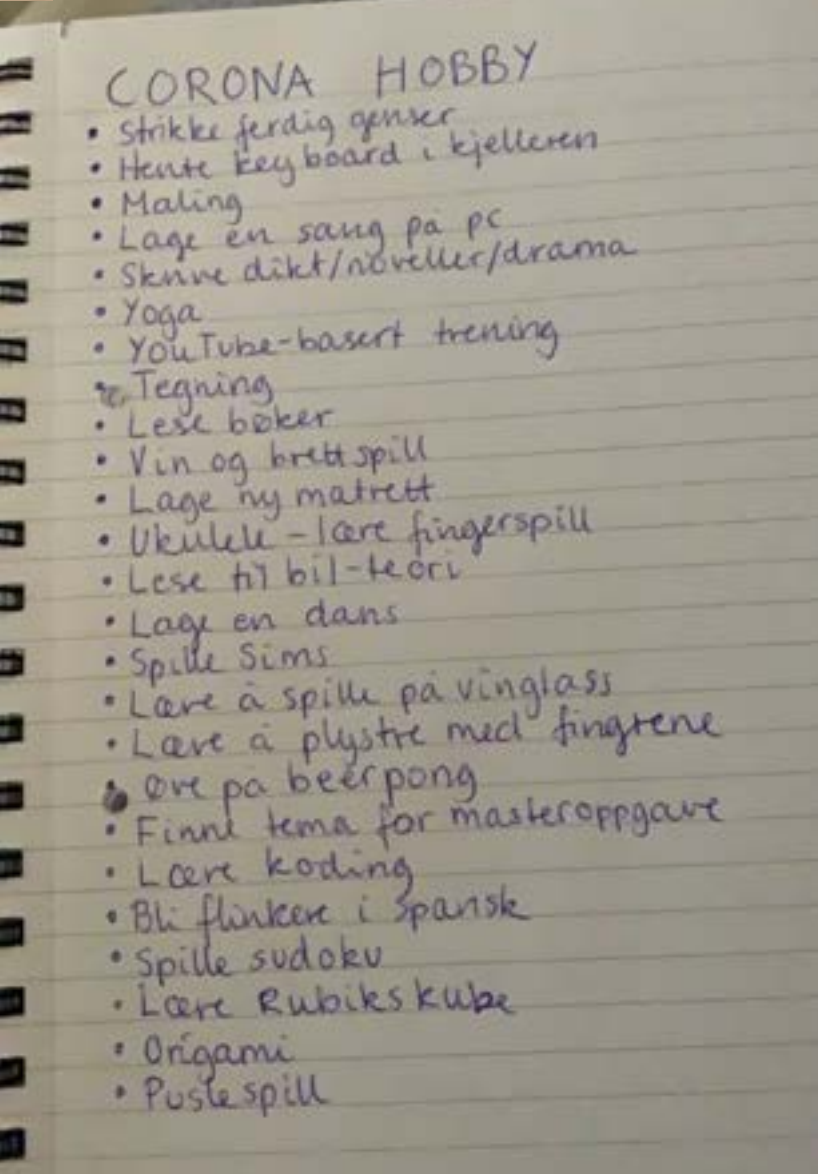 CORONA HOBBY
• Strikke ferdig genser
• Hente keyboard i kjelleren
• Maling
• Lage en sang på pc
• Skrive dikt/noveller/drama
• Yoga
• YouTube-basert trening
• Tegning
• Lese bøker
• Vin og brettspill
• Lage ny matrett
• Ukulele - lære fingerspill
• Lese til bil-teori
• Lage en dans
• Spille Sims
• Lære å spille på vinglass
• Lære å plystre med fingrene
• Øve på beerpong
• Finne tema for masteroppgave
• Lære koding
• Bli flinkere i spansk
• Spille sudoku
• Lære Rubiks kube
• Origami
• Puslespill